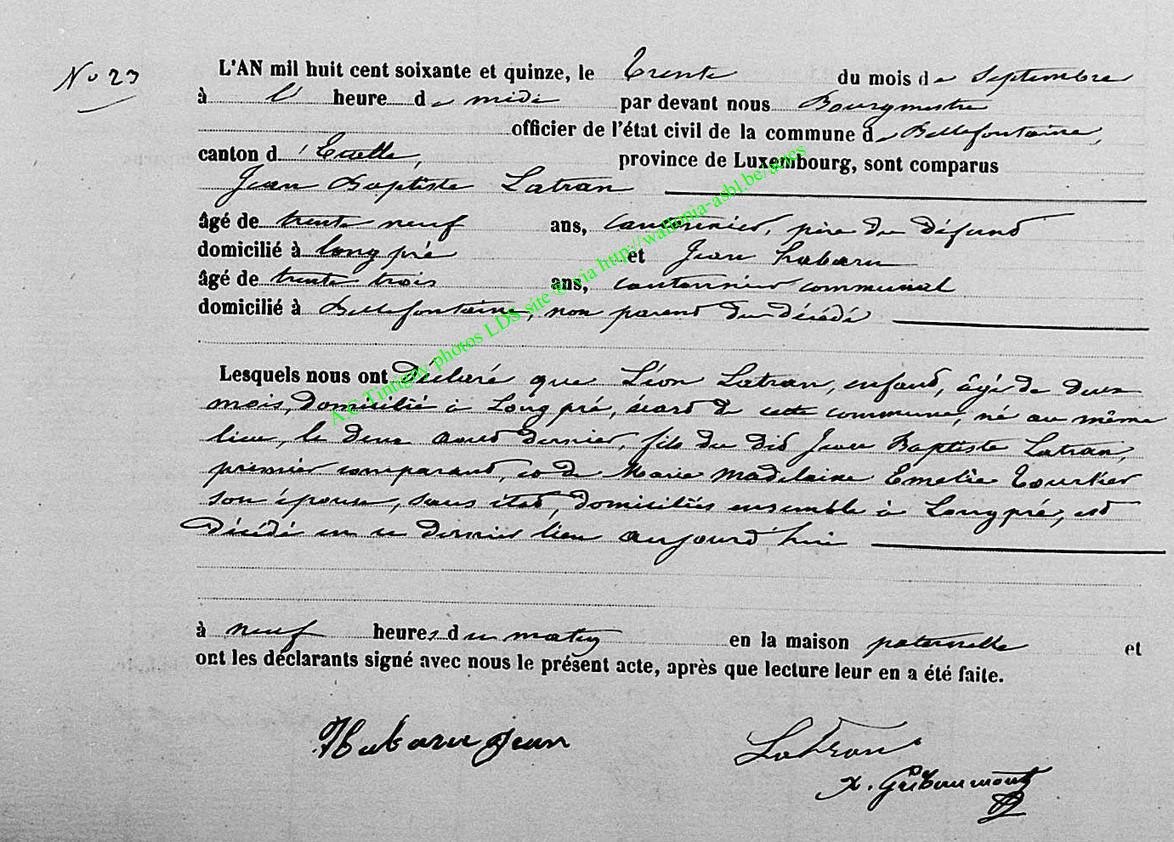 No 23
L'AN mil huit cent soixante et quinze, le trente du mois de Septembre
à l' heure de midi par devant nous Bourgmestre
officier de l'état civil de la commune de Bellefontaine,
canton d'Etalle, province de Luxembourg, sont comparus
Jean Baptiste Latran
âgé de trente neuf ans, cantonnier, père du défunt
domicilié à Long pré et Jean habaru
âgé de trente trois ans, cantonnier communal
domicilié à Bellefontaine, non parent du décédé
Lesquels nous ont déclaré que Léon Latran, enfant, âgé de deux
mois, domicilié à Long pré, écart de cette commune, né au même
lieu, le deux août dernier, fils du dit Jean Baptiste Latran,
premier comparant, et de Marie Madelaine Emelie
son épouse, sans état, domiciliés ensemble à Long pré, est
décédé en ce dernier lieu aujourd'hui
à neuf heures du matin en la maison paternelle et
ont les déclarants signé avec nous le présent acte, après que lecture leur en a été faite.
Habaru jean
Latran
A.C Tintigny photos LDS site & via http://wallonia-asbl.be/actes